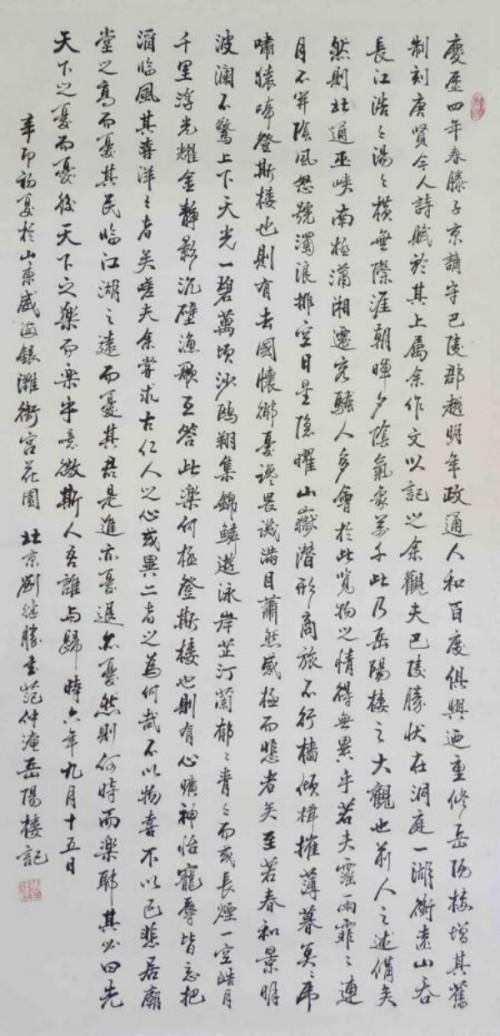 慶歷四年春滕子京謫守巴陵郡越明年政通人和百廢俱興迺重修岳陽樓增其舊
制刻唐賢今人詩賦於其上屬余作文以記之余觀夫巴陵勝狀在洞庭一湖銜遠山吞
長江浩〻湯〻橫無際涯朝暉夕陰氣象萬千此乃岳陽樓之大觀也前人之述備矣
然則北通巫峽南極瀟湘遷客騷人多會於此覽物之情得無異乎若夫霪雨霏〻連
月不開陰風怒號濁浪排空日星隱曜山嶽潛形商旅不行檣傾楫摧薄暮冥〻虎
嘯猿啼登斯樓也則有去國懷鄉憂讒畏譏滿目蕭然感極而悲者矣至若春和景明
波瀾不驚上下天光一碧萬頃沙鷗翔集錦鱗游泳岸芷汀蘭郁〻青〻而或長煙一空皓月
千里浮光耀金靜影沉璧漁歌互答此樂何極登斯樓也則有心曠神怡寵辱皆忘把
酒臨風其喜洋〻者矣嗟夫余嘗求古仁人之心或異二者之為何哉不以物喜不以己悲居廟
堂之高而憂其民臨江湖之遠而憂其君是進亦憂退亦憂然則何時而樂耶其必曰先
天下之憂而憂後天下之樂而樂乎噫微斯人吾誰與歸時六年九月十五日
辛卯初夏於山東威海銀灘衛宮花園 北京劉繼勝書范仲淹岳陽樓記